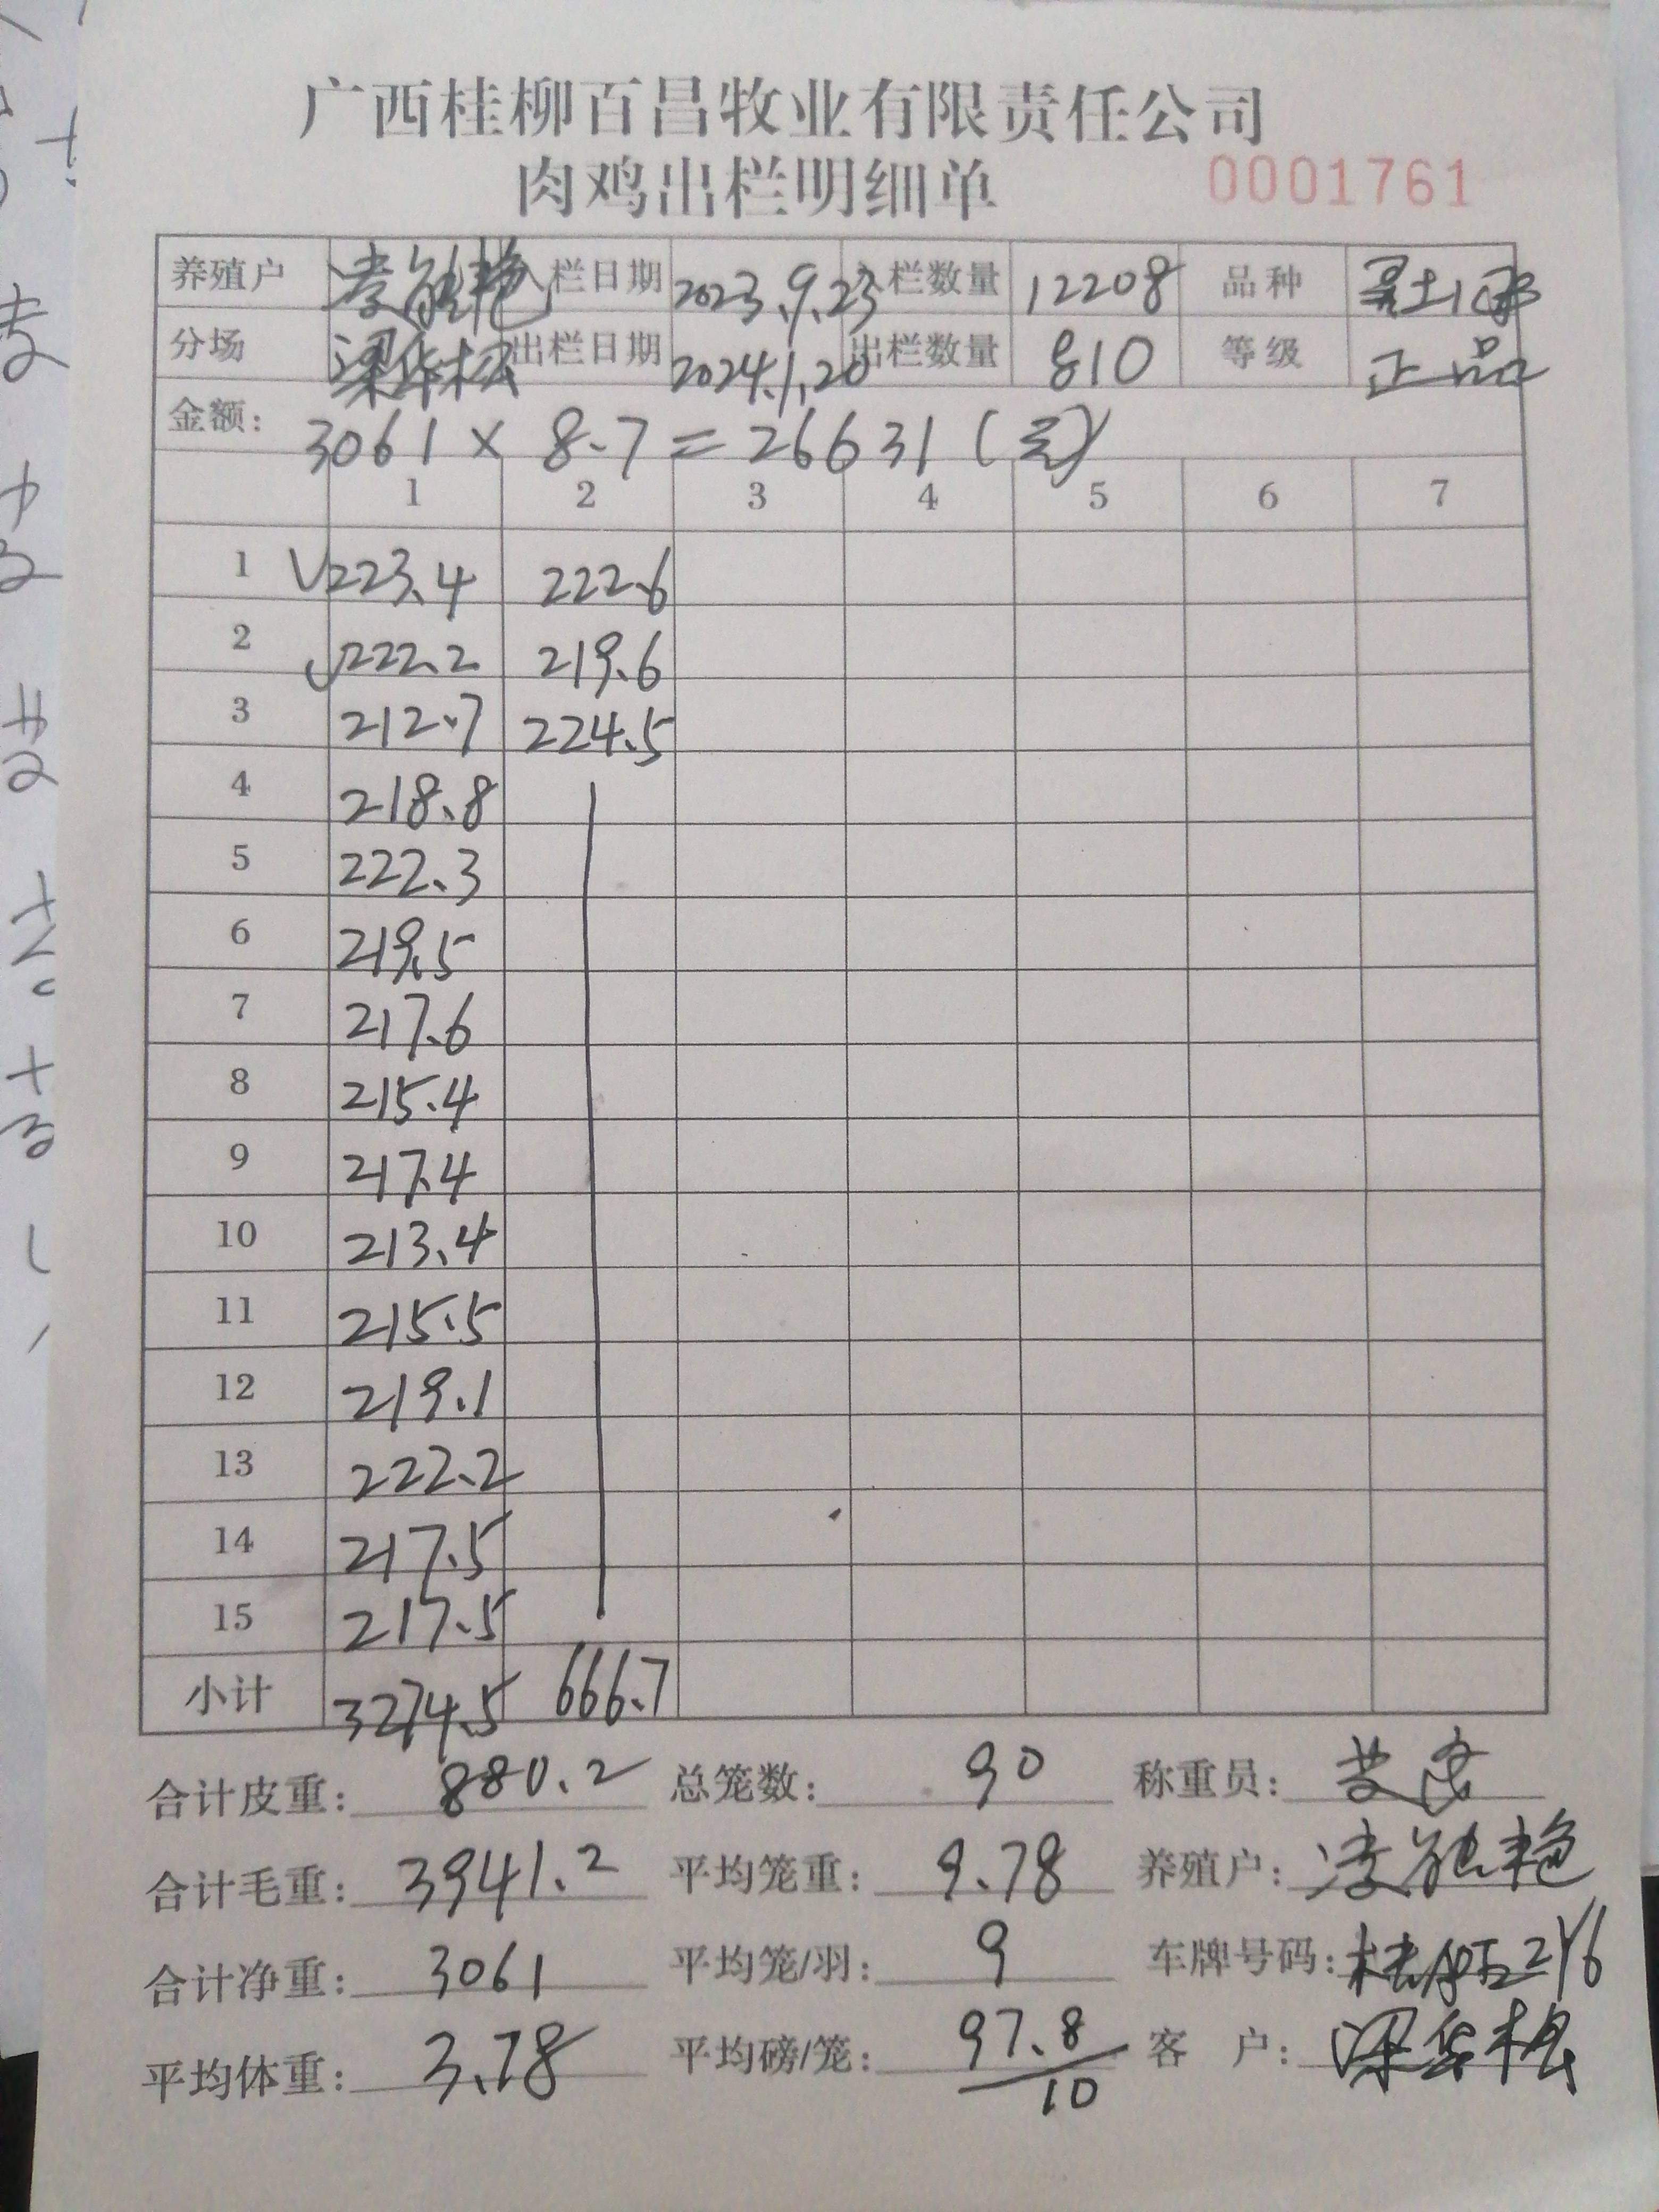 广西桂柳百昌牧业有限责任公司
肉鸡出栏明细单 0001761
养殖户 入栏日期 2023.9.23 入栏数量 12208 品种
分场 梁华松 出栏日期 2024.1.20 出栏数量 810 等级 正品
金额: 3061 × 8.7 = 26631 (元)
1 2 3 4 5 6 7
1 √223.4 222.6
2 √222.2 219.6
3 212.7 224.5
4 218.8
5 222.3
6 219.5
7 217.6
8 215.4
9 217.4
10 213.4
11 215.5
12 219.1
13 222.2
14 217.5
15 217.5
小计 3274.5 666.7
合计皮重: 880.2 总笼数: 90 称重员:
合计毛重: 3941.2 平均笼重: 9.78 养殖户:
合计净重: 3061 平均笼/羽: 9 车牌号码:
平均体重: 3.78 平均磅/笼: 97.8/10 客 户: 梁华松